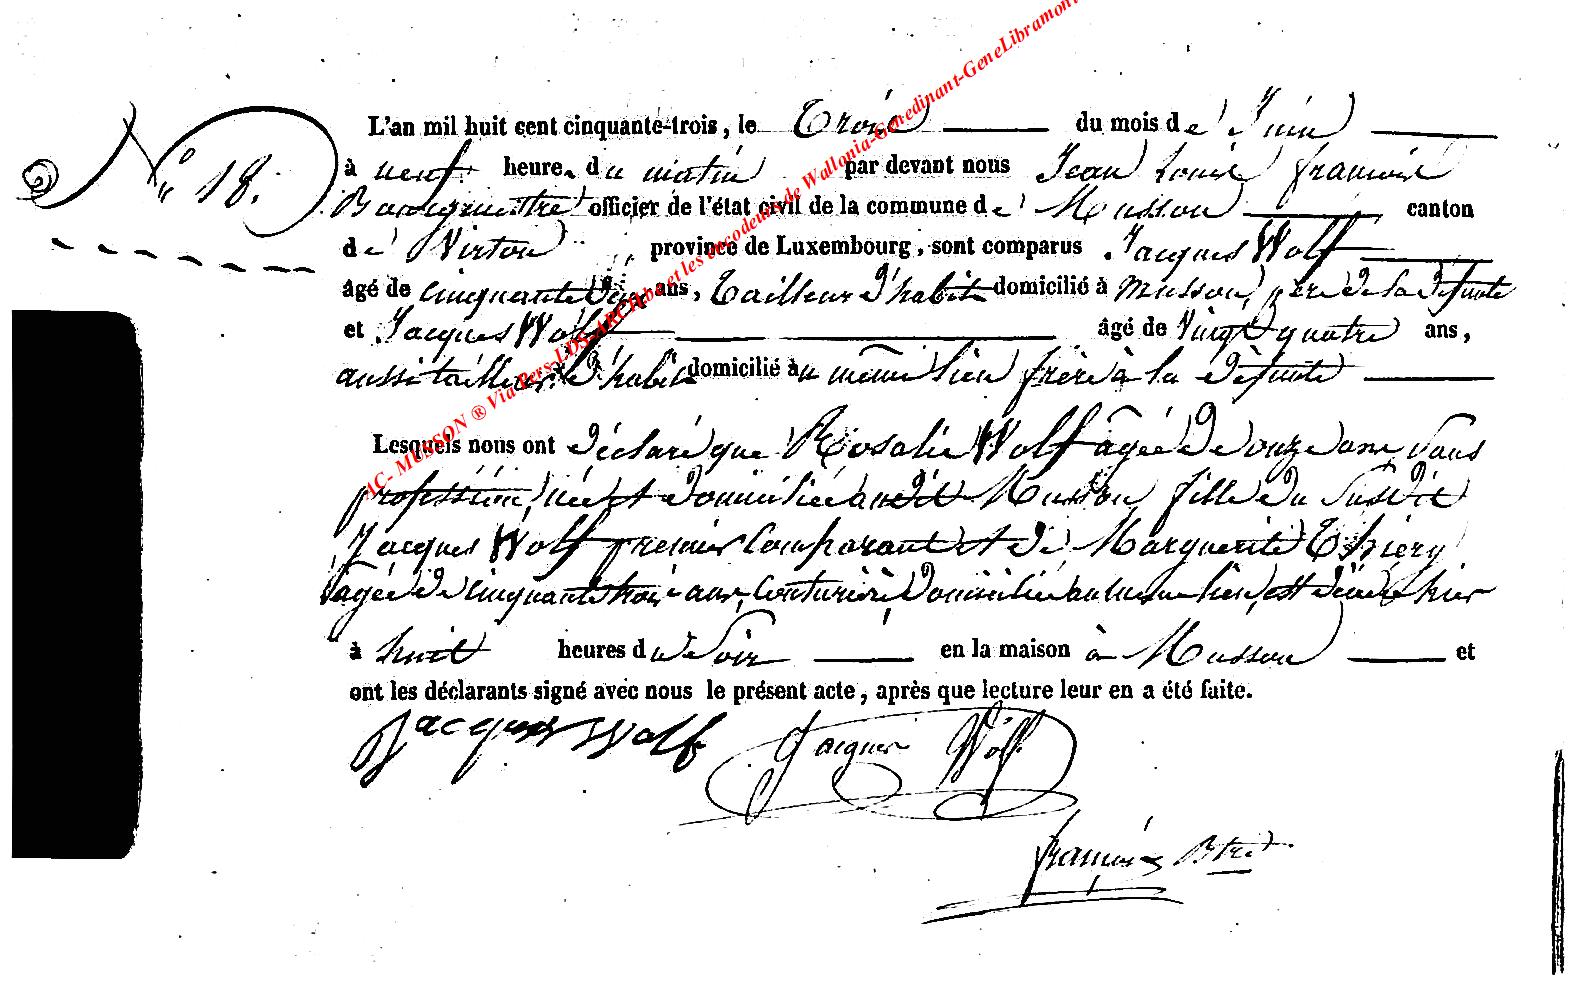 N° 18.
L'an mil huit cent cinquante-trois, le Trois du mois de Juin
à neuf heures du matin par devant nous Jean Louis françois
Bourguemestre officier de l'état civil de la commune de Musson canton
de Virton province de Luxembourg, sont comparus Jacques Wolf
âgé de cinquante ans, Tailleur d'habits domicilié à Musson, père de la défunte
et Jacques Wolf âgé de Vingt quatre ans,
aussi tailleur d'habits domicilié au même lieu frère à la défunte
Lesquels nous ont déclaré que Rosalie Wolf agée de onze ans sans
profession, née et domiciliée audit Musson fille du susdit
Jacques Wolf premier comparant et de Marguerite Thiery
agée de cinquante trois ans, couturière, domiciliée au même lieu, est décédée hier
à huit heures du soir en la maison à Musson et
ont les déclarants signé avec nous le présent acte, après que lecture leur en a été faite.
Jacques Wolf Jacques Wolf
françois Btre
AC- MUSSON ® Via Pers-LDS-ARCHbe et les encodeurs de Wallonia-Genedinant-GeneLibramont